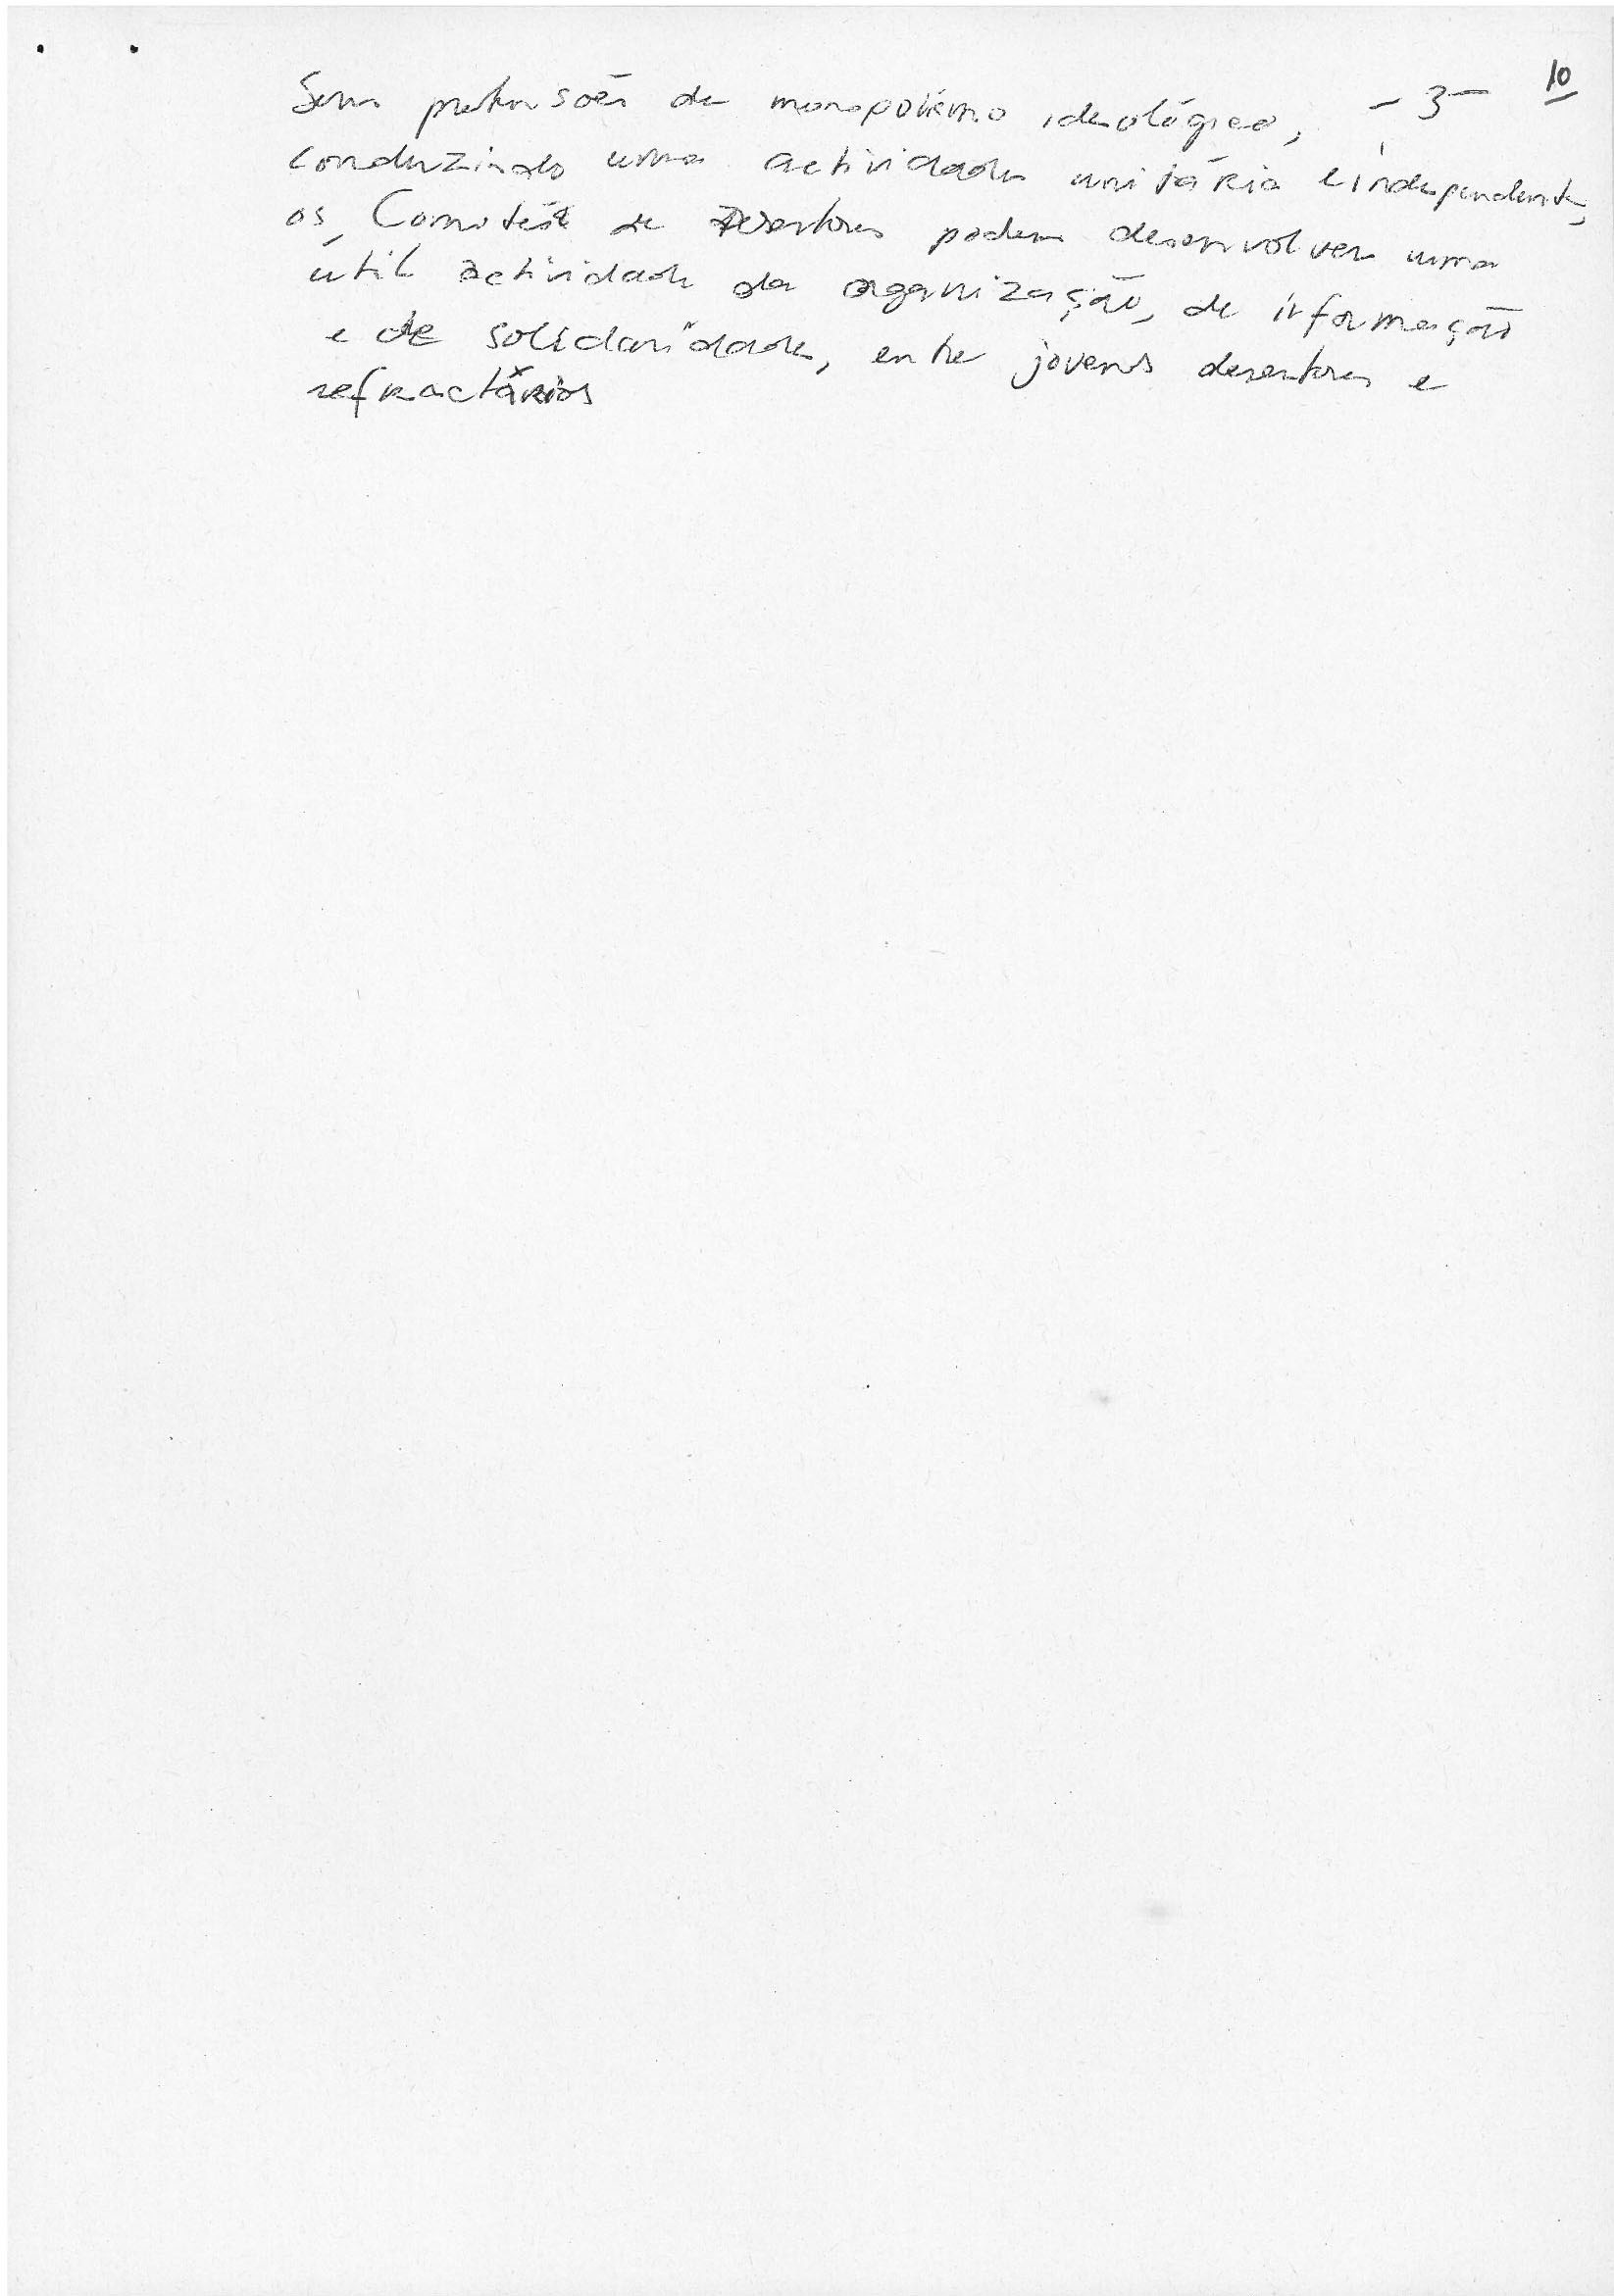 10
- 3 -
Sem pretensões de monopolismo ideológico,
conduzindo uma actividade unitária e independente,
os Comités de Desertores podem desenvolver uma
útil actividade de organização, de informação
e de solidariedade, entre jovens desertores e
refractários